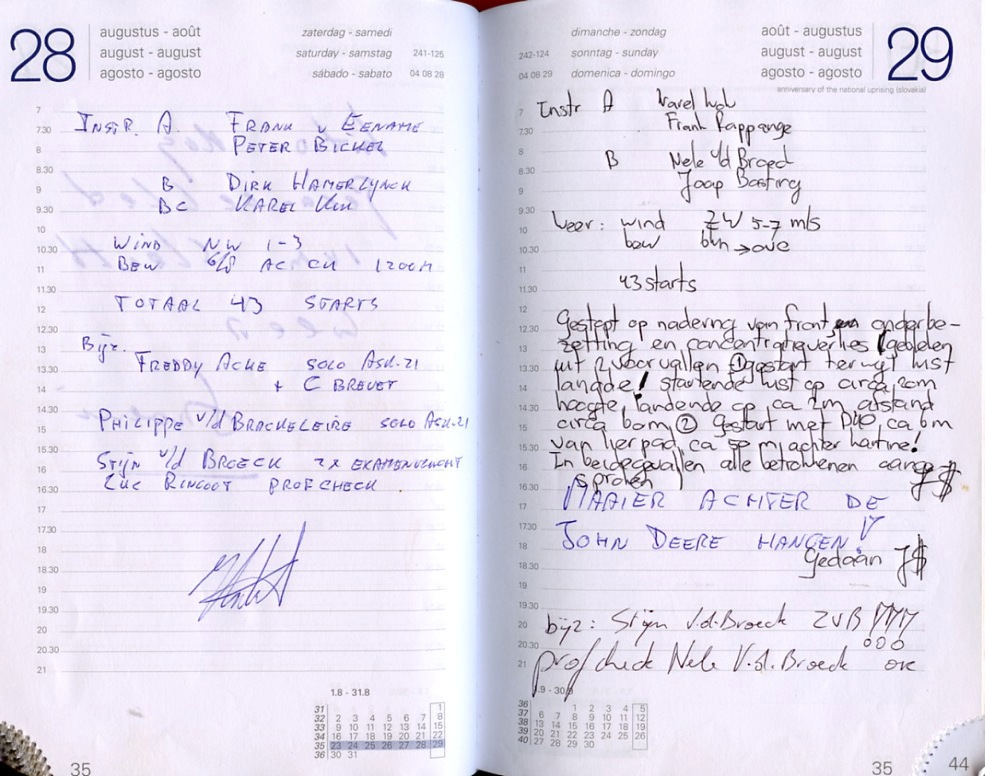 28
augustus - août
august - august
agosto - agosto
zaterdag - samedi
saturday - samstag 241-125
sábado - sabato 04 08 28
7
7.30 INSTR. A. FRANK v EENAME
8 PETER BICKEL
8.30
9 B DIRK HAMERLYNCK
9.30 BC KAREL
10
10.30 WIND NW 1-3
11 BEW 6/8 AC CU 1200M
11.30
12 TOTAAL 43 STARTS
12.30
13 Bijz.
13.30 FREDDY ACKE SOLO ASK-21
14 + C BREVET
14.30
15 PHILIPPE v/d BRACKELEIRE SOLO ASK-21
15.30
16 STIJN v/d BROECK 2x EXAMENVLUCHT
16.30 LUC RINGOOT PROFCHECK
17
17.30
18
18.30
19
19.30
20
20.30
21
1.8 - 31.8
31 1
32 2 3 4 5 6 7 8
33 9 10 11 12 13 14 15
34 16 17 18 19 20 21 22
35 23 24 25 26 27 28 29
36 30 31
35
dimanche - zondag
242-124 sonntag - sunday
04 08 29 domenica - domingo
août - augustus
august - august
agosto - agosto
29
anniversary of the national uprising (slovakia)
7 Instr A Karel
7.30 Frank Rappange
8
8.30 B Nele v/d Broed
9 Joop Basting
9.30
10 Weer: wind ZW 5-7 m/s
10.30 bew bkn → ovc
11
11.30 43 starts
12
12.30 Gestopt op nadering van front, en onderbe-
13 zetting en concentratieverlies (gebleken
13.30 uit 2 voorvallen ① gestart terwijl kist
14 landde! startende kist op circa 20m
14.30 hoogte, landende op ca 2m afstand
15 circa 60m ② Gestart met DUO, ca 6m
15.30 van lierpad, ca 50 m achter
16 In beide gevallen alle betrokkenen aange
16.30 sproken JS
17 MAAIER ACHTER DE
17.30
18 JOHN DEERE HANGEN!
18.30 Gedaan JS
19
19.30
20 bijz: Stijn V.d.Broeck ZVB !!!
20.30
21 profcheck Nele V.d.Broeck ok
1.9 - 30.9
36 1 2 3 4 5
37 6 7 8 9 10 11 12
38 13 14 15 16 17 18 19
39 20 21 22 23 24 25 26
40 27 28 29 30
35
44